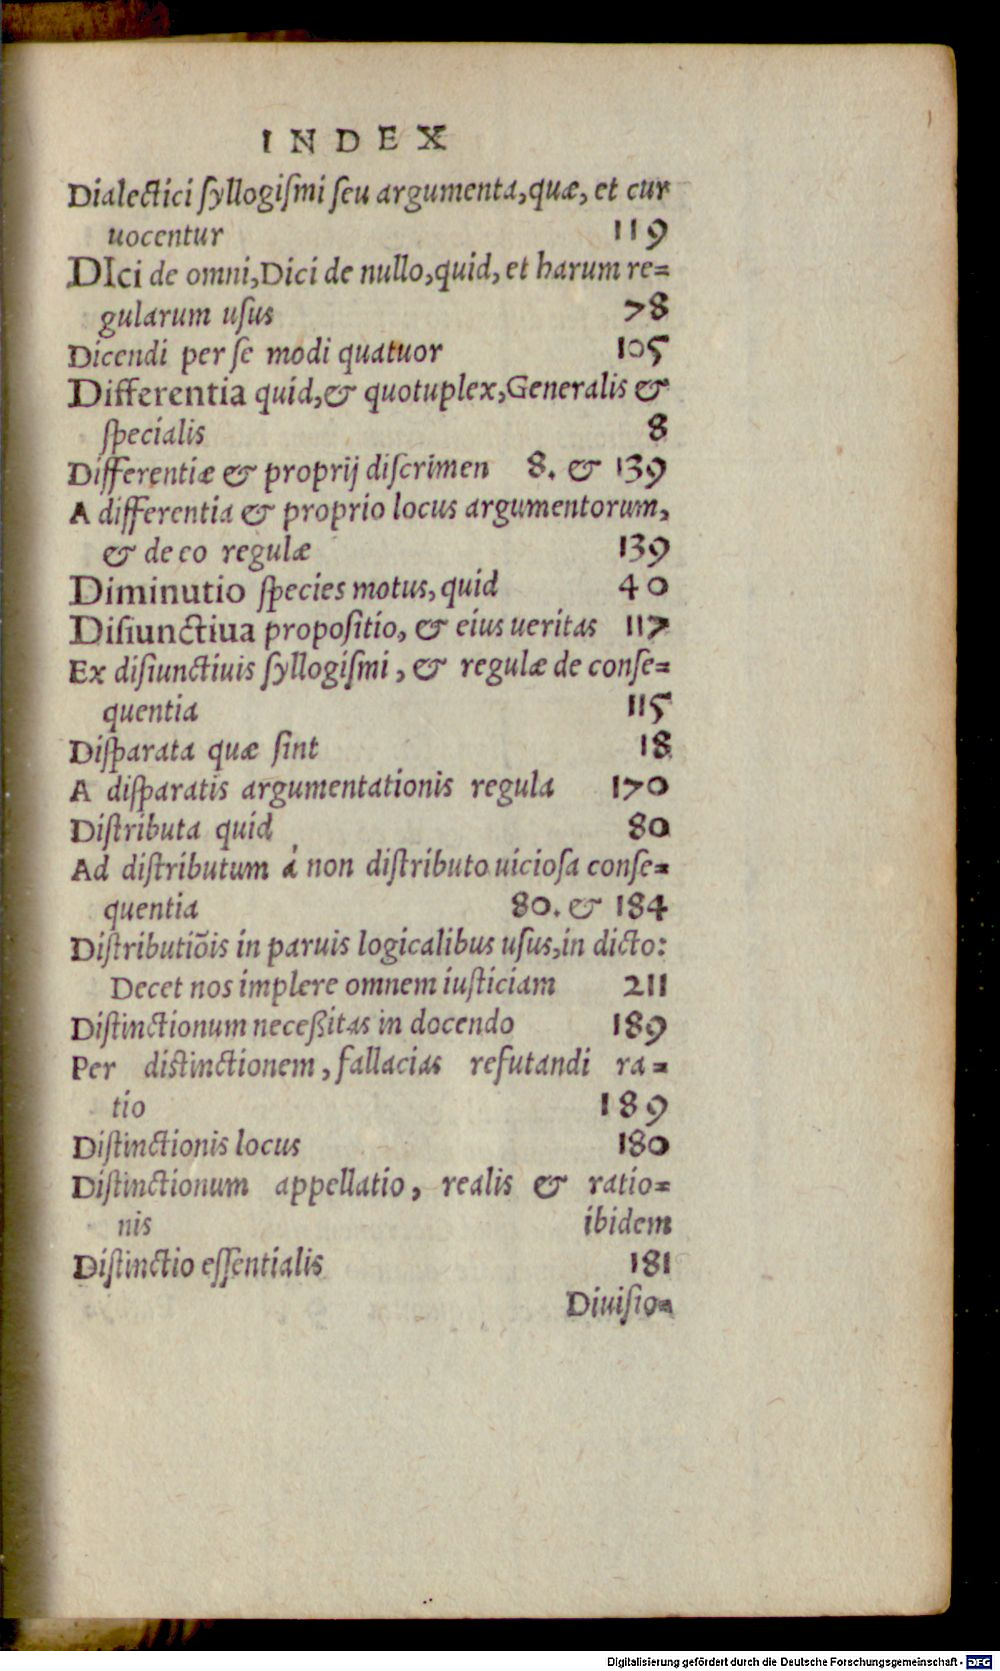 INDEX
Dialectici ſyllogiſmi ſeu argumenta,quæ, et cur
uocentur 119
DIci de omni,Dici de nullo,quid, et harum re=
gularum uſus 78
Dicendi per ſe modi quatuor 105
Differentia quid,& quotuplex,Generalis &
ſpecialis 8
Differentiæ & proprij diſcrimen 8. & 139
A differentia & proprio locus argumentorum,
& de eo regulæ 139
Diminutio ſpecies motus, quid 40
Diſiunctiua propoſitio, & eius ueritas 117
Ex diſiunctiuis ſyllogiſmi, & regulæ de conſe=
quentia 115
Diſparata quæ ſint 18
A diſparatis argumentationis regula 170
Diſtributa quid 80
Ad diſtributum à non diſtributo uicioſa conſe=
quentia 80. & 184
Diſtributiõis in paruis logicalibus uſus,in dicto:
Decet nos implere omnem iuſticiam 211
Diſtinctionum neceßitas in docendo 189
Per diſtinctionem, fallacias refutandi ra=
tio 189
Diſtinctionis locus 180
Diſtinctionum appellatio, realis & ratio=
nis ibidem
Diſtinctio eſſentialis 181
Diuiſio=
Digitalisierung gefördert durch die Deutsche Forschungsgemeinschaft - DFG